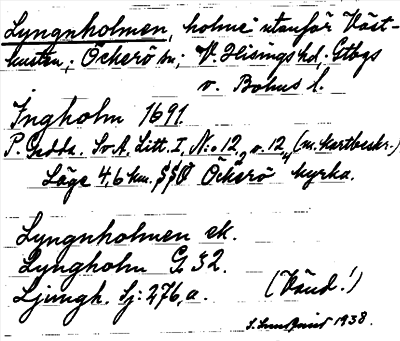 Lyngnholmen, holme utanför Väst-
kusten; Öckerö sn; V. Hisings hd; Gtbgs
o. Bohus l.
Yngholm 1691.
P. Gedda. Sv.A. Litt. I, N:o 12 o. 12 (m. kartbeskr.)
Läge 4,6 km. SSO Öckerö kyrka.
Lyngnholmen ek.
Lyngholm G 32.
Ljungh. Sj: 276, a. (Vänd!)
1938.